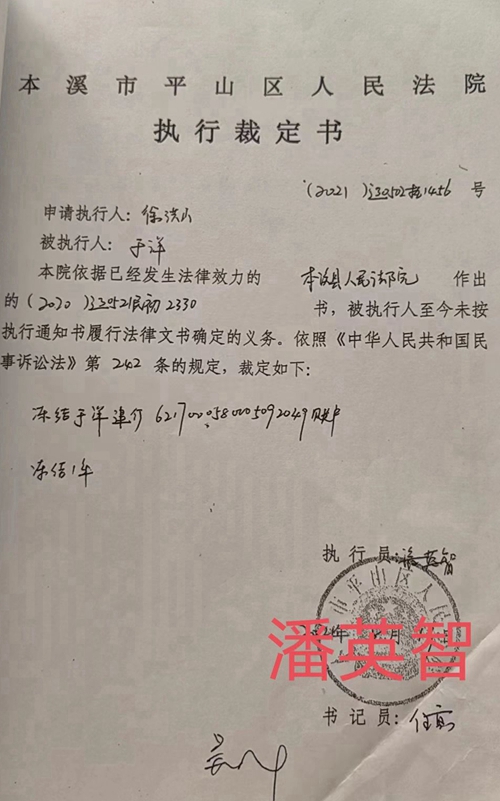 本溪市平山区人民法院
执行裁定书
(2021)辽0502执1456 号
申请执行人：徐洪山
被执行人：于洋
本院依据已经发生法律效力的 本溪县人民法院 作出
的(2020)辽0521民初2330 书，被执行人至今未按
执行通知书履行法律文书确定的义务。依照《中华人民共和国民
事诉讼法》第 242 条的规定，裁定如下：
冻结于洋建行6217000580005092049账户
冻结1年
执行员：潘英智
市平山区人民
年 月 日
潘英智
书记员：